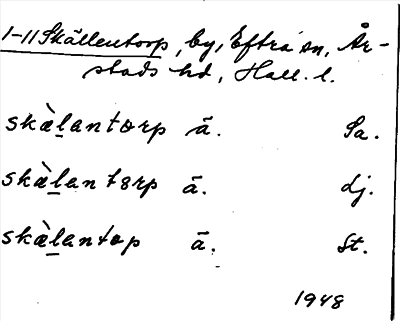 1-11 Skällentorp, by, Eftra sn, År-
stads hd, Hall. l.
skæ̀l̲antorp ā. Sa.
skæ̀l̲antɜrp ā. dj.
skæ̀l̲antɒp ā. St.
1948